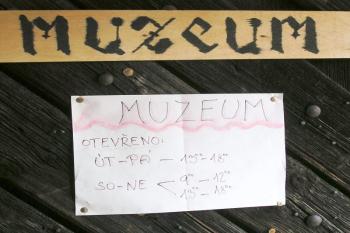 MUZEUM
MUZEUM
OTEVŘENO:
ÚT-PÁ - 13⁰⁰-18⁰⁰
SO-NE < 9⁰⁰ - 12⁰⁰
13⁰⁰ - 18⁰⁰